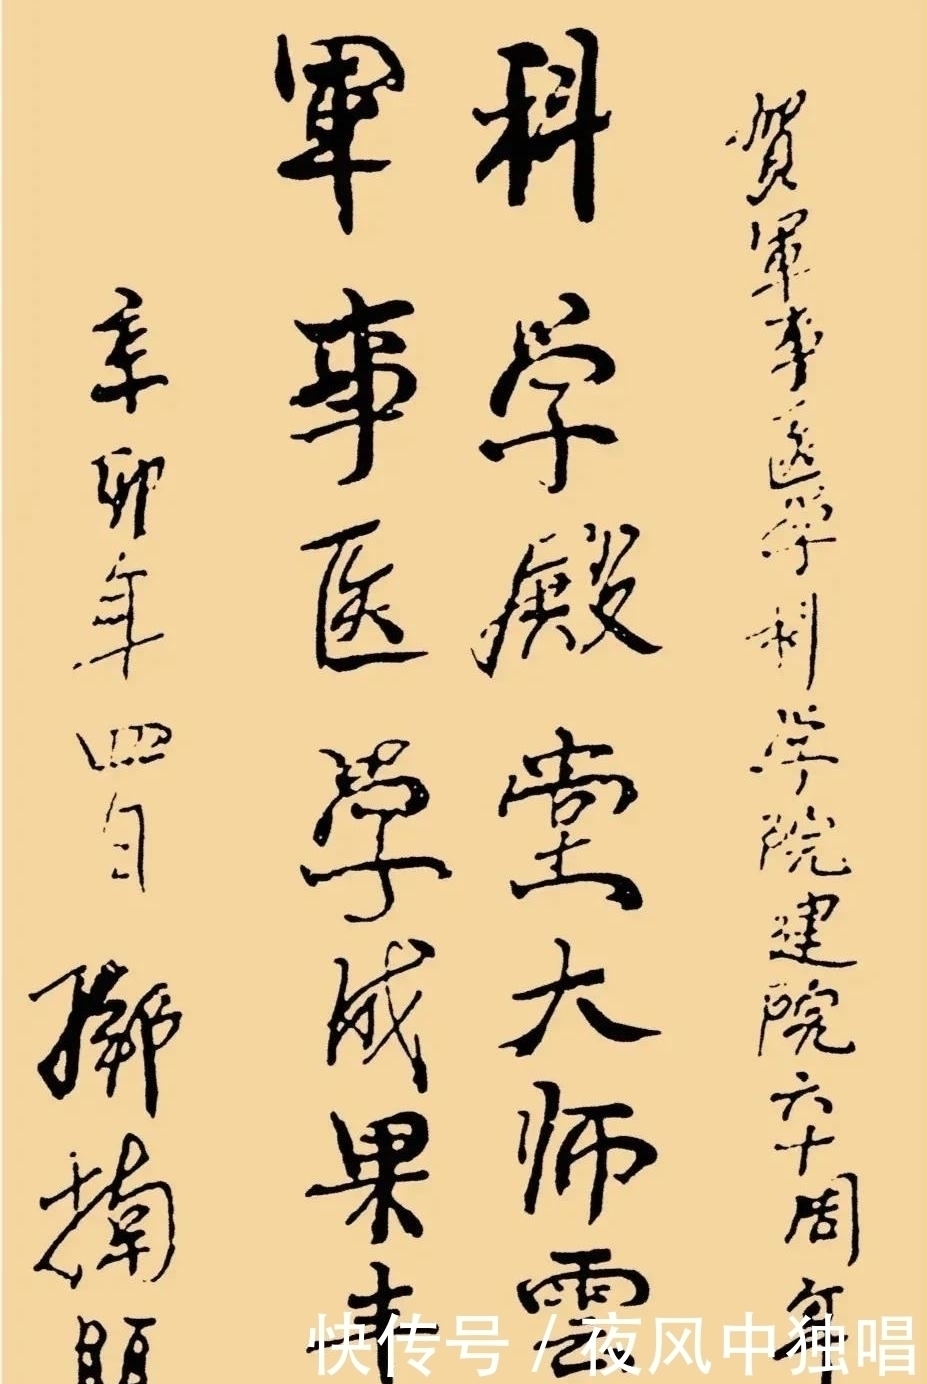 賀軍事医学科学院建院六十周年
科学殿堂大师雲
軍事医学成果丰
辛卯年四月
快传号 / 夜风中独唱